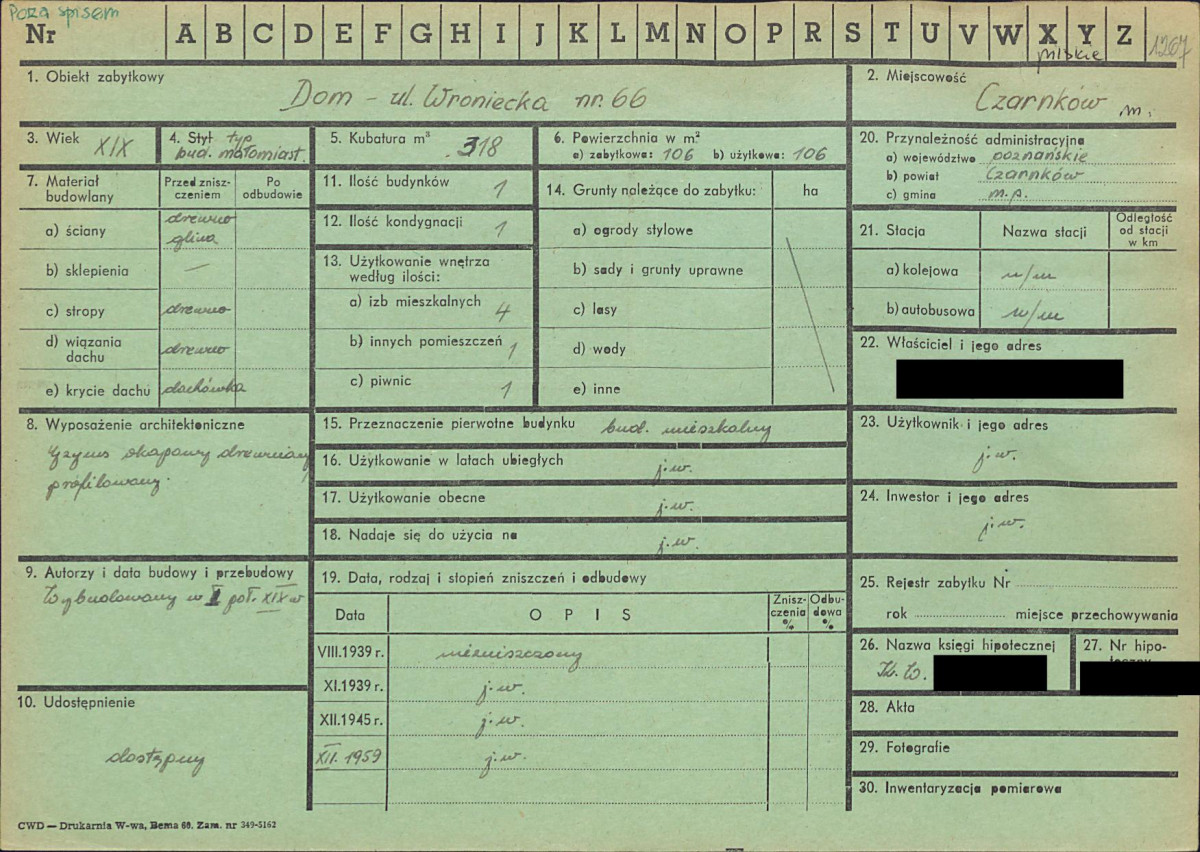 Poza spisem
Nr A B C D E F G H I J K L M N O P R S T U V W X Y Z 1267
pilskie
1. Obiekt zabytkowy
Dom – ul. Wroniecka nr. 66
2. Miejscowość
Czarnków m.
3. Wiek XIX
4. Styl typ
bud. małomiast.
5. Kubatura m³ 318
6. Powierzchnia w m²
a) zabytkowa: 106 b) użytkowa: 106
20. Przynależność administracyjna
a) województwo poznańskie
b) powiat Czarnków
c) gmina m.p.
7. Materiał budowlany
Przed zniszczeniem
Po odbudowie
a) ściany drewno
glina
b) sklepienia —
c) stropy drewno
d) wiązania dachu drewno
e) krycie dachu dachówka
11. Ilość budynków 1
12. Ilość kondygnacji 1
13. Użytkowanie wnętrza
według ilości:
a) izb mieszkalnych 4
b) innych pomieszczeń 1
c) piwnic 1
14. Grunty należące do zabytku: ha
a) ogrody stylowe
b) sady i grunty uprawne
c) lasy
d) wody
e) inne
21. Stacja Nazwa stacji Odległość od stacji w km
a) kolejowa w/m
b) autobusowa w/m
22. Właściciel i jego adres
8. Wyposażenie architektoniczne
Gzyms okapowy drewniany
profilowany.
15. Przeznaczenie pierwotne budynku bud. mieszkalny
16. Użytkowanie w latach ubiegłych j.w.
17. Użytkowanie obecne j.w.
18. Nadaje się do użycia na j.w.
23. Użytkownik i jego adres
j.w.
24. Inwestor i jego adres
j.w.
9. Autorzy i data budowy i przebudowy
Wybudowany w I poł. XIX w
19. Data, rodzaj i stopień zniszczeń i odbudowy
Data OPIS Zniszczenia % Odbudowa %
VIII.1939 r. niezniszczony
XI.1939 r. j.w.
XII.1945 r. j.w.
XII. 1959 j.w.
25. Rejestr zabytku Nr
rok miejsce przechowywania
26. Nazwa księgi hipotecznej
K.W.
27. Nr hipo-
10. Udostępnienie
dostępny
28. Akta
29. Fotografie
30. Inwentaryzacja pomiarowa
CWD — Drukarnia W-wa, Bema 60. Zam. nr 349-5162